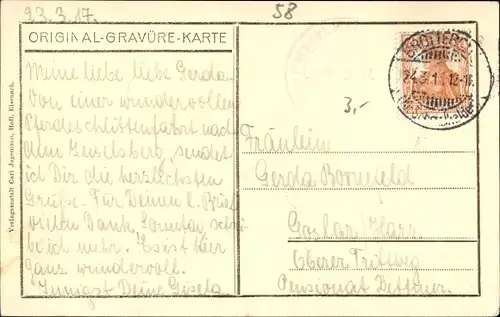 23.3.17.
58
ORIGINAL-GRAVÜRE-KARTE
BROTTERO
24.3.1 12-1
3,-
Meine liebe liebe Gerda.
Von einer wundervollen
Pferdeschlittenfahrt nach
dem Inselsberg, sendet
ich Dir die herzlichsten
Grüße. Für Deinen l. Brief
vielen Dank, Sonntag schrei
be ich mehr. Es ist hier
ganz wundervoll.
Innigst Deine Gisela
Fräulein
Gerda Bornefeld
Goslar, Harz
Oberer Triftweg
Pensionat Dettmer.
Verlagsanstalt Carl Jagemann, Hofl. Eisenach.